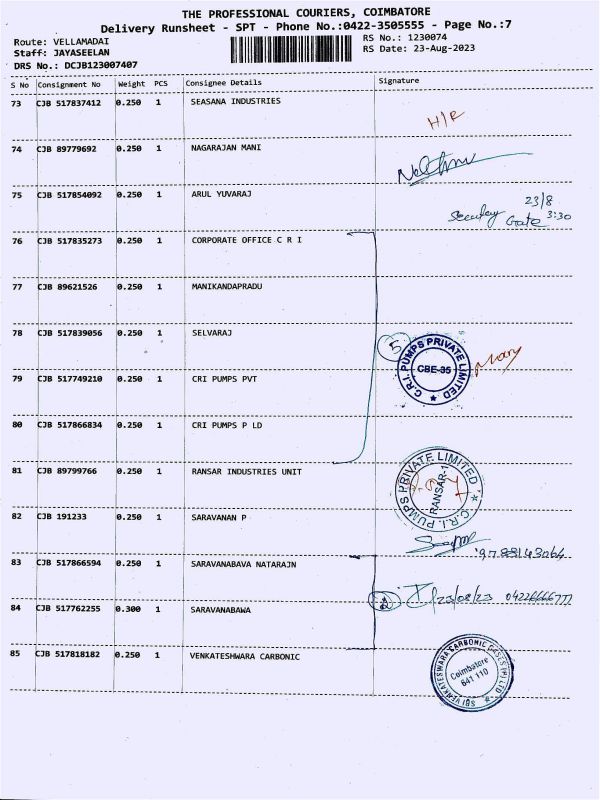 THE PROFESSIONAL COURIERS, COIMBATORE
Delivery Runsheet - SPT - Phone No.:0422-3505555 - Page No.:7
Route: VELLAMADAI
RS No.: 1230074
Staff: JAYASEELAN
RS Date: 23-Aug-2023
DRS No.: DCJB123007407
S No Consignment No Weight PCS Consignee Details Signature
73 CJB 517837412 0.250 1 SEASANA INDUSTRIES
H/R
74 CJB 89779692 0.250 1 NAGARAJAN MANI
75 CJB 517854092 0.250 1 ARUL YUVARAJ
23/8
Gate 3:30
76 CJB 517835273 0.250 1 CORPORATE OFFICE C R I
77 CJB 89621526 0.250 1 MANIKANDAPRADU
78 CJB 517839056 0.250 1 SELVARAJ
5
C.R.I. PUMPS PRIVATE LIMITED
CBE-35
79 CJB 517749210 0.250 1 CRI PUMPS PVT
80 CJB 517866834 0.250 1 CRI PUMPS P LD
81 CJB 89799766 0.250 1 RANSAR INDUSTRIES UNIT
C.R.I. PUMPS PRIVATE LIMITED
RANSAR-1
82 CJB 191233 0.250 1 SARAVANAN P
83 CJB 517866594 0.250 1 SARAVANABAVA NATARAJN
2
23/08/23 04226666777
84 CJB 517762255 0.300 1 SARAVANABAWA
85 CJB 517818182 0.250 1 VENKATESHWARA CARBONIC
SRI VENKATESWARA CARBONIC GASES (P) LTD
Coimbatore
641 110